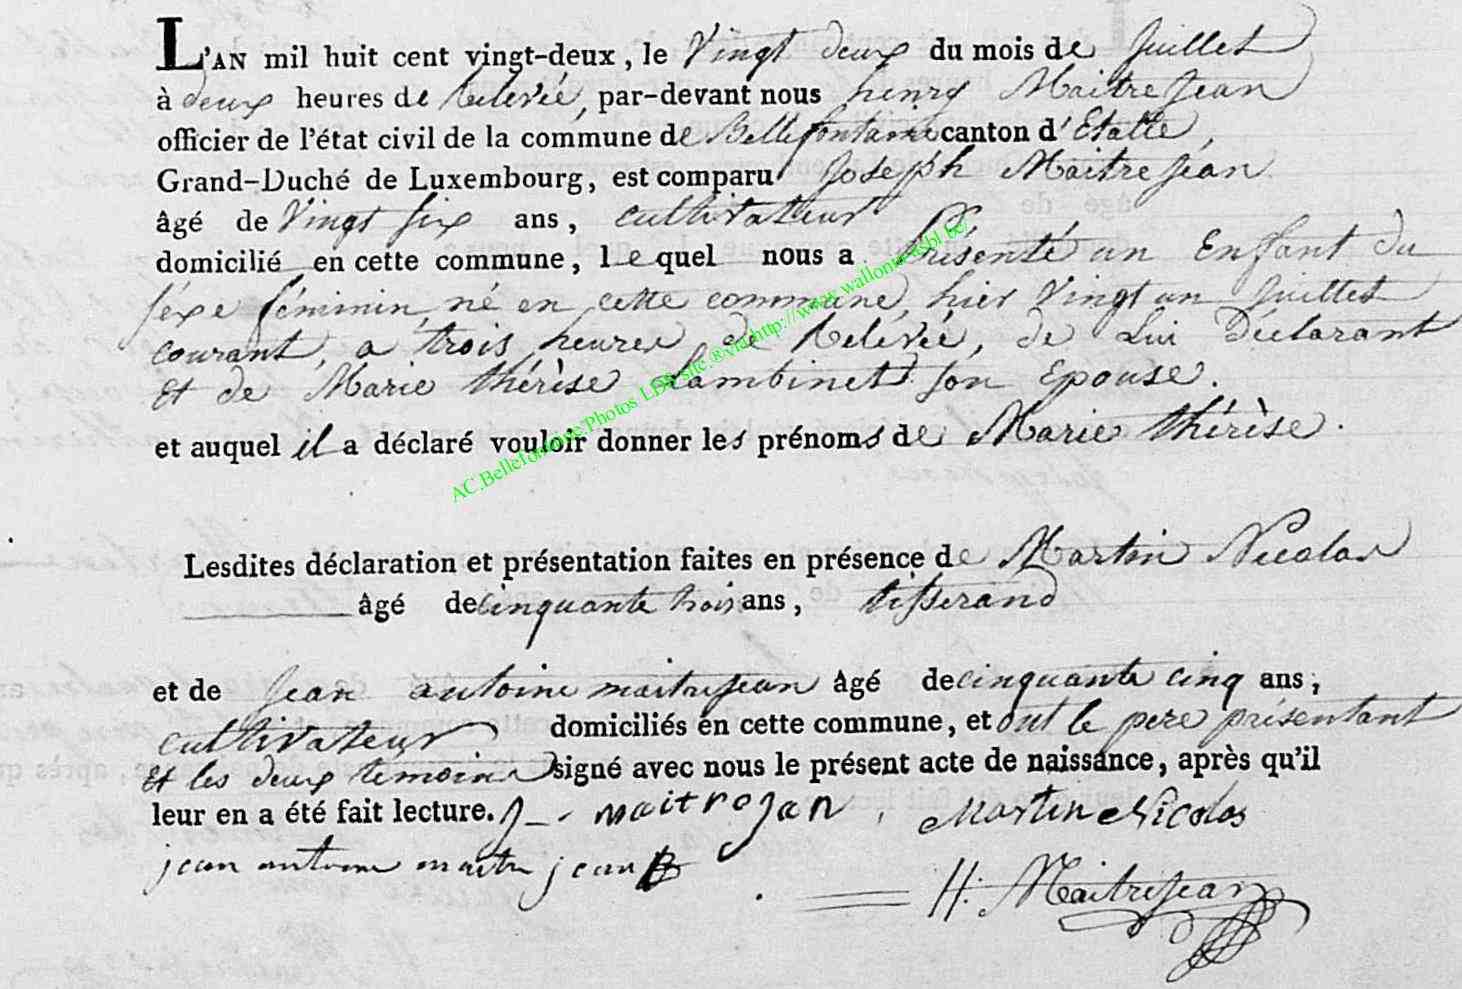 L'AN mil huit cent vingt-deux, le Vingt deux du mois de Juillet
à deux heures de Relévée, par-devant nous henry Maitrejean
officier de l'état civil de la commune de Bellefontaine canton d'Etalle,
Grand-Duché de Luxembourg, est comparu Joseph Maitrejean
âgé de Vingt six ans, cultivateur
domicilié en cette commune, lequel nous a Présenté un Enfant du
séxe féminin, né en cette commune, hier Vingt un Juillet
courant, a trois heures de Relévée, de Lui Déclarant
Et de Marie thérèse Lambinet son Epouse.
et auquel il a déclaré vouloir donner les prénoms de Marie thérèse.
AC.Bellefontaine Photos LDS site ® via http://www.wallonia asbl be/
Lesdites déclaration et présentation faites en présence de Martin Nicolas
âgé de cinquante trois ans, tisserand
et de Jean antoine maitrejean âgé de cinquante cinq ans,
cultivateur domiciliés en cette commune, et ont le pere présentant
Et les deux témoins signé avec nous le présent acte de naissance, après qu'il
leur en a été fait lecture. J - maitrojan Martin Nicolas
jean antoine maitre jean
H. Maitrejean